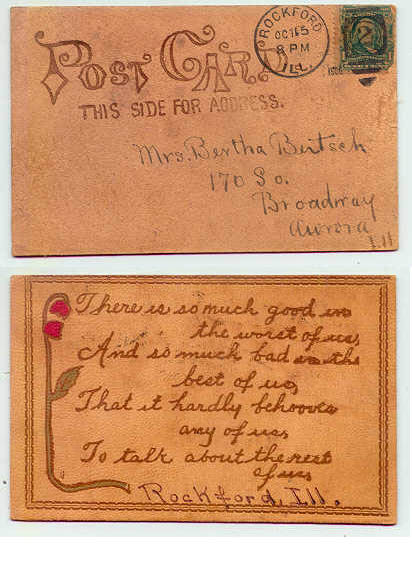 POST CARD
THIS SIDE FOR ADDRESS.
ROCKFORD
OCT 15
8 PM
ILL.
2
Mrs. Bertha Bertsch
170 So.
Broadway
Aurora
Ill
There is so much good in
the worst of us,
And so much bad in the
best of us,
That it hardly behooves
any of us,
To talk about the rest
of us,
Rockford, Ill.